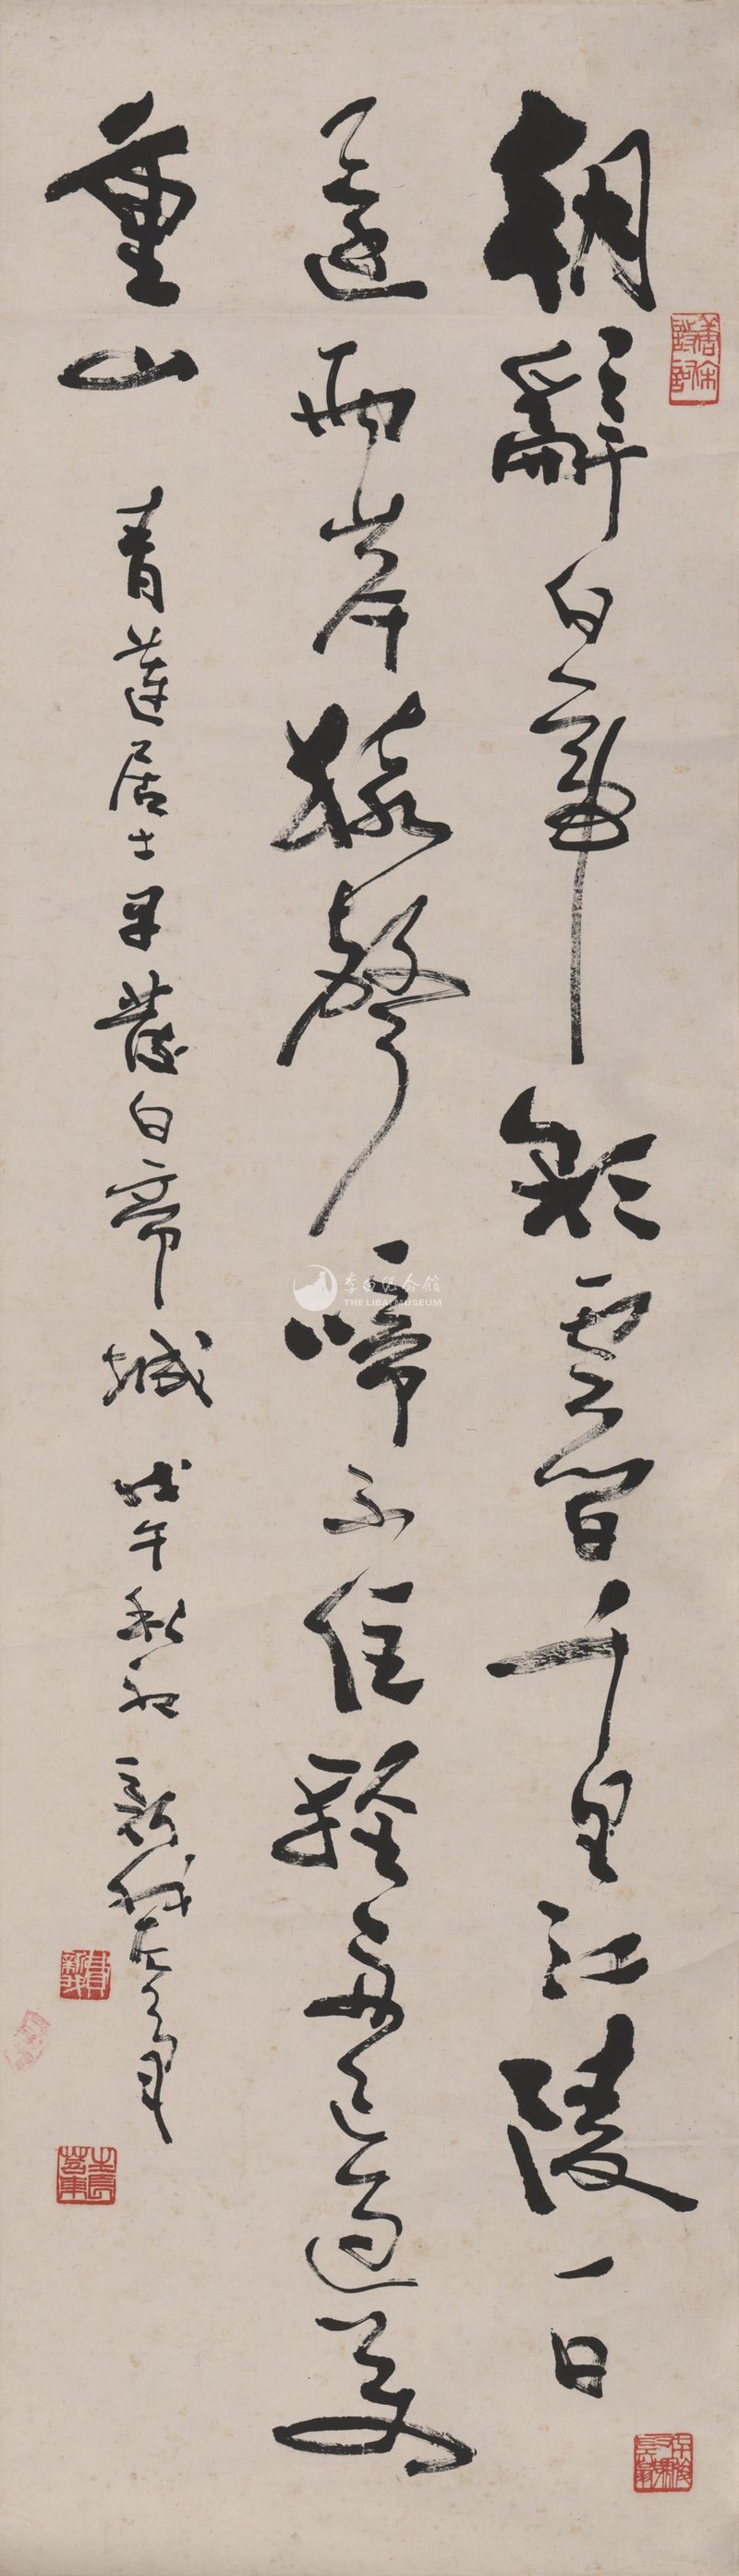 朝辭白帝彩雲間千里江陵一日
還兩岸猿聲啼不住輕舟已過萬
重山 青蓮居士早發白帝城 戊午秋初
李白纪念馆
THE LIBAI MUSEUM